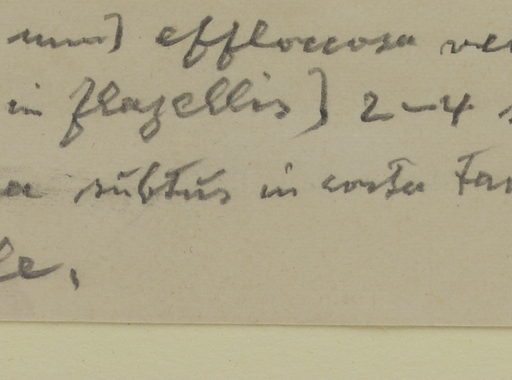 effloccosa
in flagellis) 2-4
subtus in costa